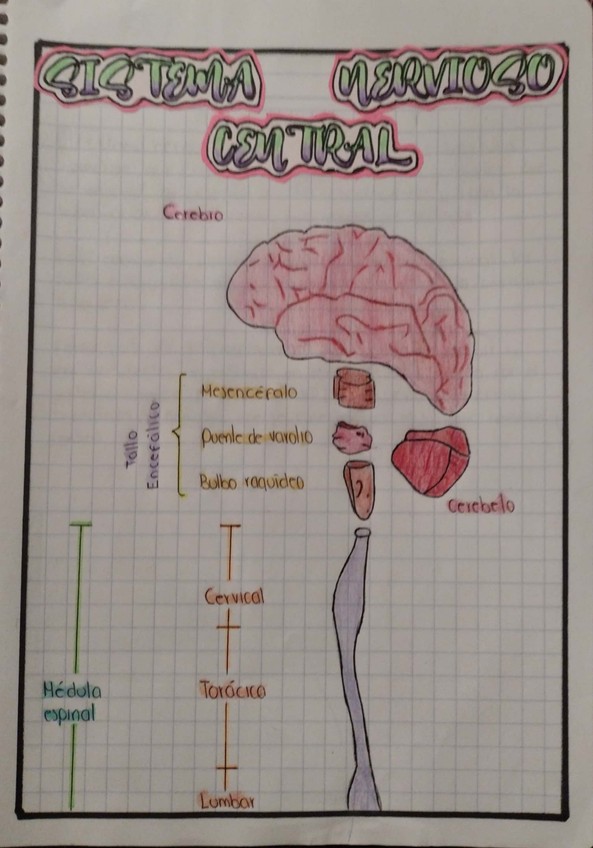 SISTEMA NERVIOSO
CENTRAL
Cerebro
Mesencéfalo
Puente de varolio
Bulbo raquídeo
Tallo
Encefálico
Cerebelo
Cervical
Torácico
Lumbar
Médula
espinal